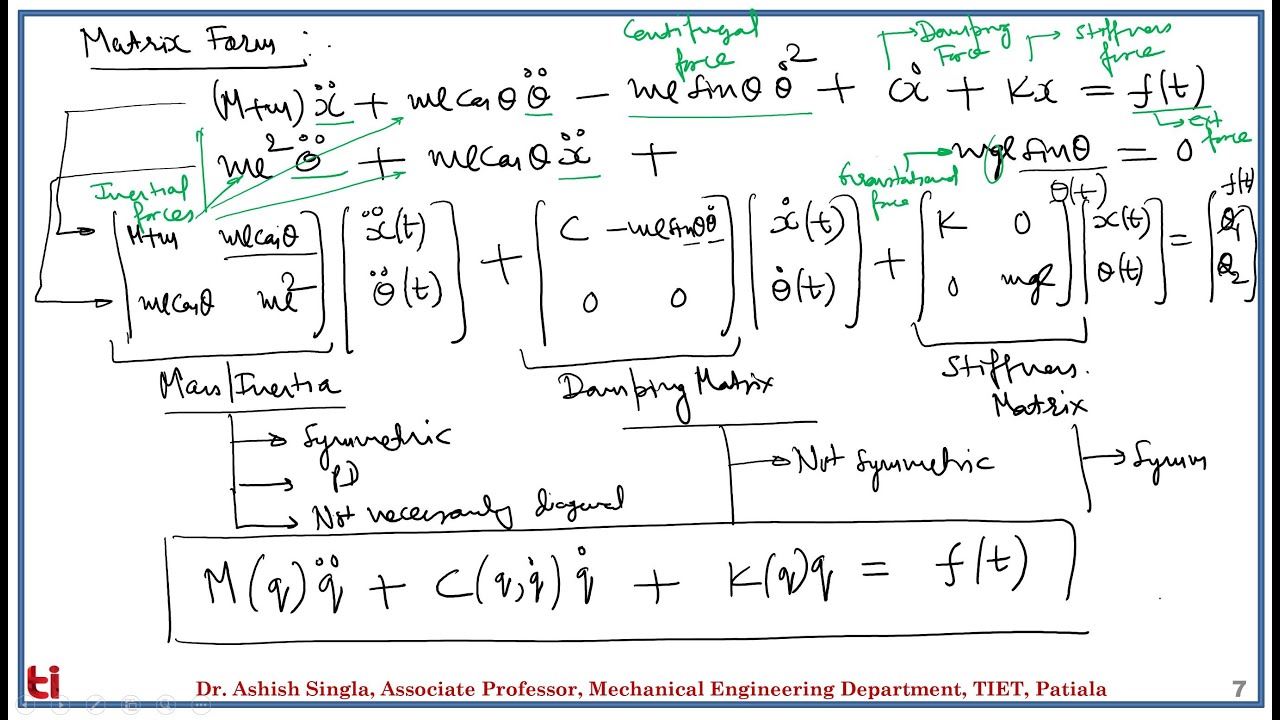 Matrix Form :
Centifugal force
Damping Force
Stiffness force
(M+m) ẍ + mlcosθ θ̈ − mlsinθ θ̇² + cẋ + Kx = f(t)
ext force
ml² θ̈ + mlcosθ ẍ + mgl sinθ = 0
Inertial forces
Gravitational force
θ(t)
f(t)
[M+m mlcosθ] [ẍ(t)] + [C −mlsinθθ̇] [ẋ(t)] + [K 0] [x(t)] = [Q₁]
[mlcosθ ml²] [θ̈(t)] [0 0] [θ̇(t)] [0 mgl] [θ(t)] [Q₂]
Mass/Inertia
Damping Matrix
Stiffness.
Matrix
→ Symmetric
→ PD
→ Not necessarily diagonal
→ Not symmetric
→ Symm
M(q)q̈ + C(q,q̇)q̇ + K(q)q = f(t)
ti
Dr. Ashish Singla, Associate Professor, Mechanical Engineering Department, TIET, Patiala
7